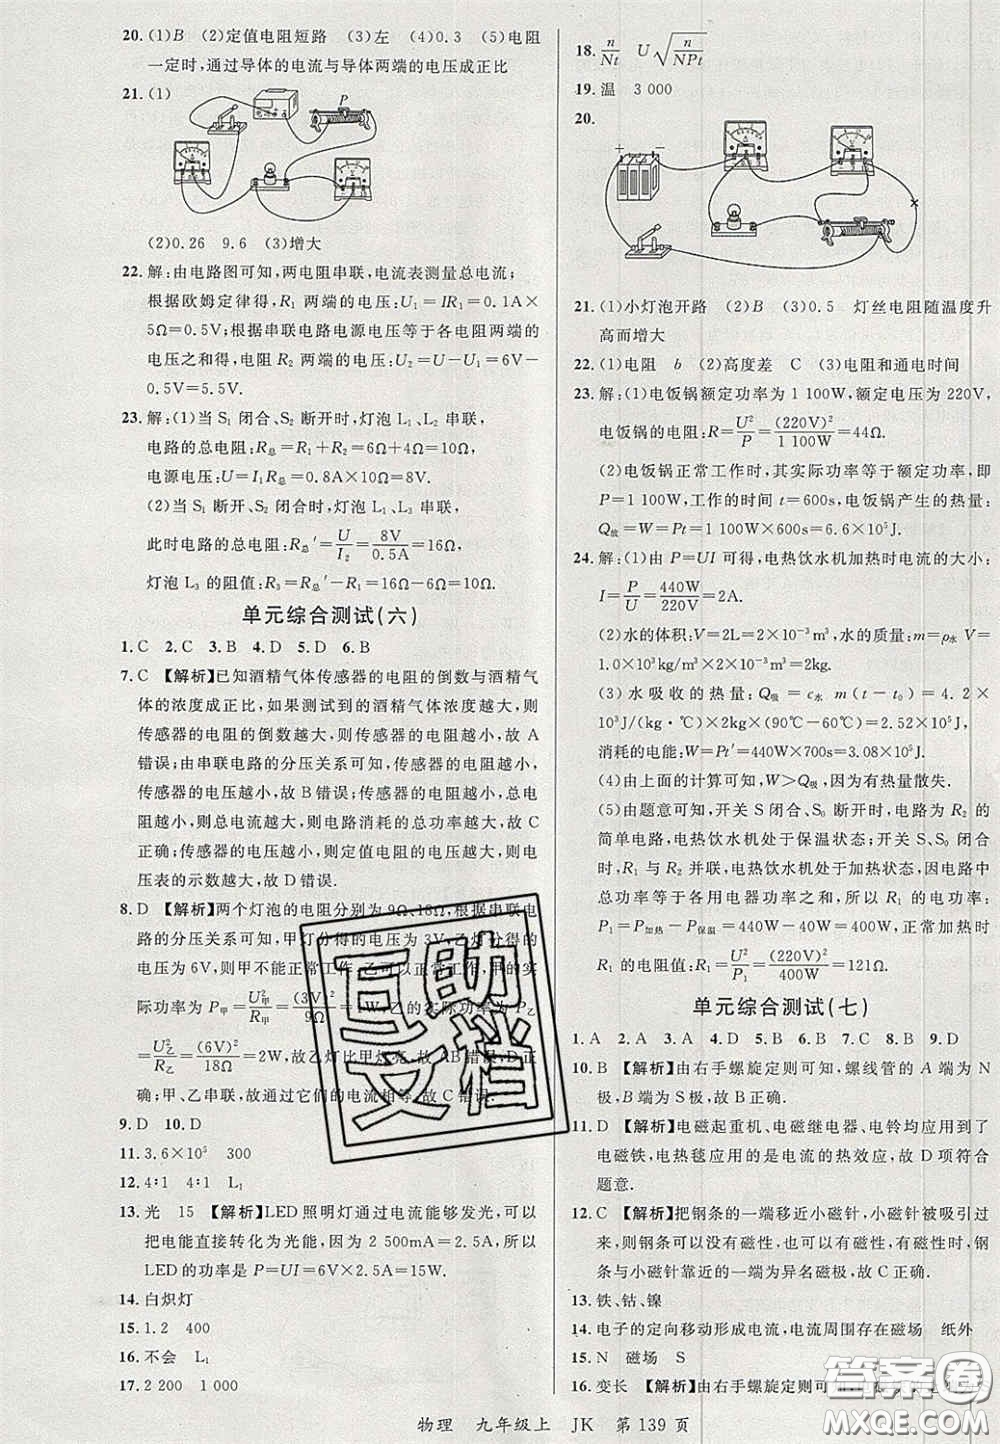 20. (1)B (2)定值电阻短路 (3)左 (4)0.3 (5)电阻
一定时,通过导体的电流与导体两端的电压成正比
21. (1)
P
(2)0.26 9.6 (3)增大
22. 解:由电路图可知,两电阻串联,电流表测量总电流;
根据欧姆定律得,R₁ 两端的电压:U₁=IR₁=0.1A×
5Ω=0.5V;根据串联电路电源电压等于各电阻两端的
电压之和得,电阻 R₂ 两端的电压:U₂=U-U₁=6V-
0.5V=5.5V.
23. 解:(1)当 S₁ 闭合、S₂ 断开时,灯泡 L₁、L₂ 串联,
电路的总电阻:R总=R₁+R₂=6Ω+4Ω=10Ω,
电源电压:U=I₁R总=0.8A×10Ω=8V.
(2)当 S₁ 断开、S₂ 闭合时,灯泡 L₁、L₃ 串联,
此时电路的总电阻:R总′=U/I₂=8V/0.5A=16Ω,
灯泡 L₃ 的阻值:R₃=R总′-R₁=16Ω-6Ω=10Ω.
单元综合测试(六)
1. C 2. C 3. B 4. D 5. D 6. B
7. C 【解析】已知酒精气体传感器的电阻的倒数与酒精气
体的浓度成正比,如果测试到的酒精气体浓度越大,则
传感器的电阻的倒数越大,传感器的电阻越小,故 A
错误;由串联电路的分压关系可知,传感器的电阻越小,
传感器的电压越小,故 B 错误;传感器的电阻越小,总电
阻越小,则总电流越大,则电路消耗的总功率越大,故 C
正确;传感器的电压越小,则定值电阻的电压越大,即电
压表的示数越大,故 D 错误.
8. D 【解析】两个灯泡的电阻分别为9Ω、18Ω,根据串联电
路的分压关系可知,甲灯分得的电压为 3V,乙灯分得的
电压为 6V,则甲不能正常工作,乙可以正常工作,甲的实
际功率为 P甲=U²甲/R甲=(3V)²/9Ω=1W,乙的实际功率为 P乙
=U²乙/R乙=(6V)²/18Ω=2W,故乙灯比甲灯亮,故 AB 错误,D 正
确;甲、乙串联,故通过它们的电流相等,故 C 错误.
9. D 10. D
11. 3.6×10⁵ 300
12. 4:1 4:1 L₁
13. 光 15 【解析】LED 照明灯通过电流能够发光,可以
把电能直接转化为光能,因为 2 500mA=2.5A,所以
LED 的功率是 P=UI=6V×2.5A=15W.
14. 白炽灯
15. 1.2 400
16. 不会 L₁
17. 2 200 1 000
18. n/Nt U√(n/NPt)
19. 温 3 000
20.
+ -
21. (1)小灯泡开路 (2)B (3)0.5 灯丝电阻随温度升
高而增大
22. (1)电阻 b (2)高度差 C (3)电阻和通电时间
23. 解:(1)电饭锅额定功率为 1 100W,额定电压为 220V,
电饭锅的电阻:R=U²/P=(220V)²/1 100W=44Ω.
(2)电饭锅正常工作时,其实际功率等于额定功率,即
P=1 100W,工作的时间 t=600s,电饭锅产生的热量:
Q放=W=Pt=1 100W×600s=6.6×10⁵J.
24. 解:(1)由 P=UI 可得,电热饮水机加热时电流的大小:
I=P/U=440W/220V=2A.
(2)水的体积:V=2L=2×10⁻³m³,水的质量:m=ρ水 V=
1.0×10³kg/m³×2×10⁻³m³=2kg.
(3)水吸收的热量:Q吸=c水 m(t-t₀)=4.2×
10³J/(kg·℃)×2kg×(90℃-60℃)=2.52×10⁵J,
消耗的电能:W=Pt′=440W×700s=3.08×10⁵J.
(4)由上面的计算可知,W>Q吸,因为有热量散失.
(5)由题意可知,开关 S 闭合、S₀ 断开时,电路为 R₂ 的
简单电路,电热饮水机处于保温状态;开关 S、S₀ 闭合
时,R₁ 与 R₂ 并联,电热饮水机处于加热状态,因电路中
总功率等于各用电器功率之和,所以 R₁ 的电功率:
P₁=P加热-P保温=440W-40W=400W,正常加热时
R₁ 的电阻值:R₁=U²/P₁=(220V)²/400W=121Ω.
单元综合测试(七)
1. A 2. A 3. A 4. D 5. D 6. B 7. C 8. B 9. D
10. B 【解析】由右手螺旋定则可知,螺线管的 A 端为 N
极,B 端为 S 极,故 B 正确.
11. D 【解析】电磁起重机、电磁继电器、电铃均应用了
电磁铁,电热毯应用的是电流的热效应,故 D 项符合
题意.
12. C 【解析】把钢条的一端移近小磁针,小磁针被吸引过
来,钢条可以没有磁性,也可以有磁性,如果有磁性,则
与小磁针靠近的一端为异名磁极,故 C 正确.
13. 铁、钴、镍
14. 电子的定向移动形成电流,电流周围存在磁场 纸外
15. N 磁场 S
16. 变长 【解析】由右手螺旋定则可知
物理 九年级上 JK 第 139 页
互助文档
答案卷
MXQE.COM